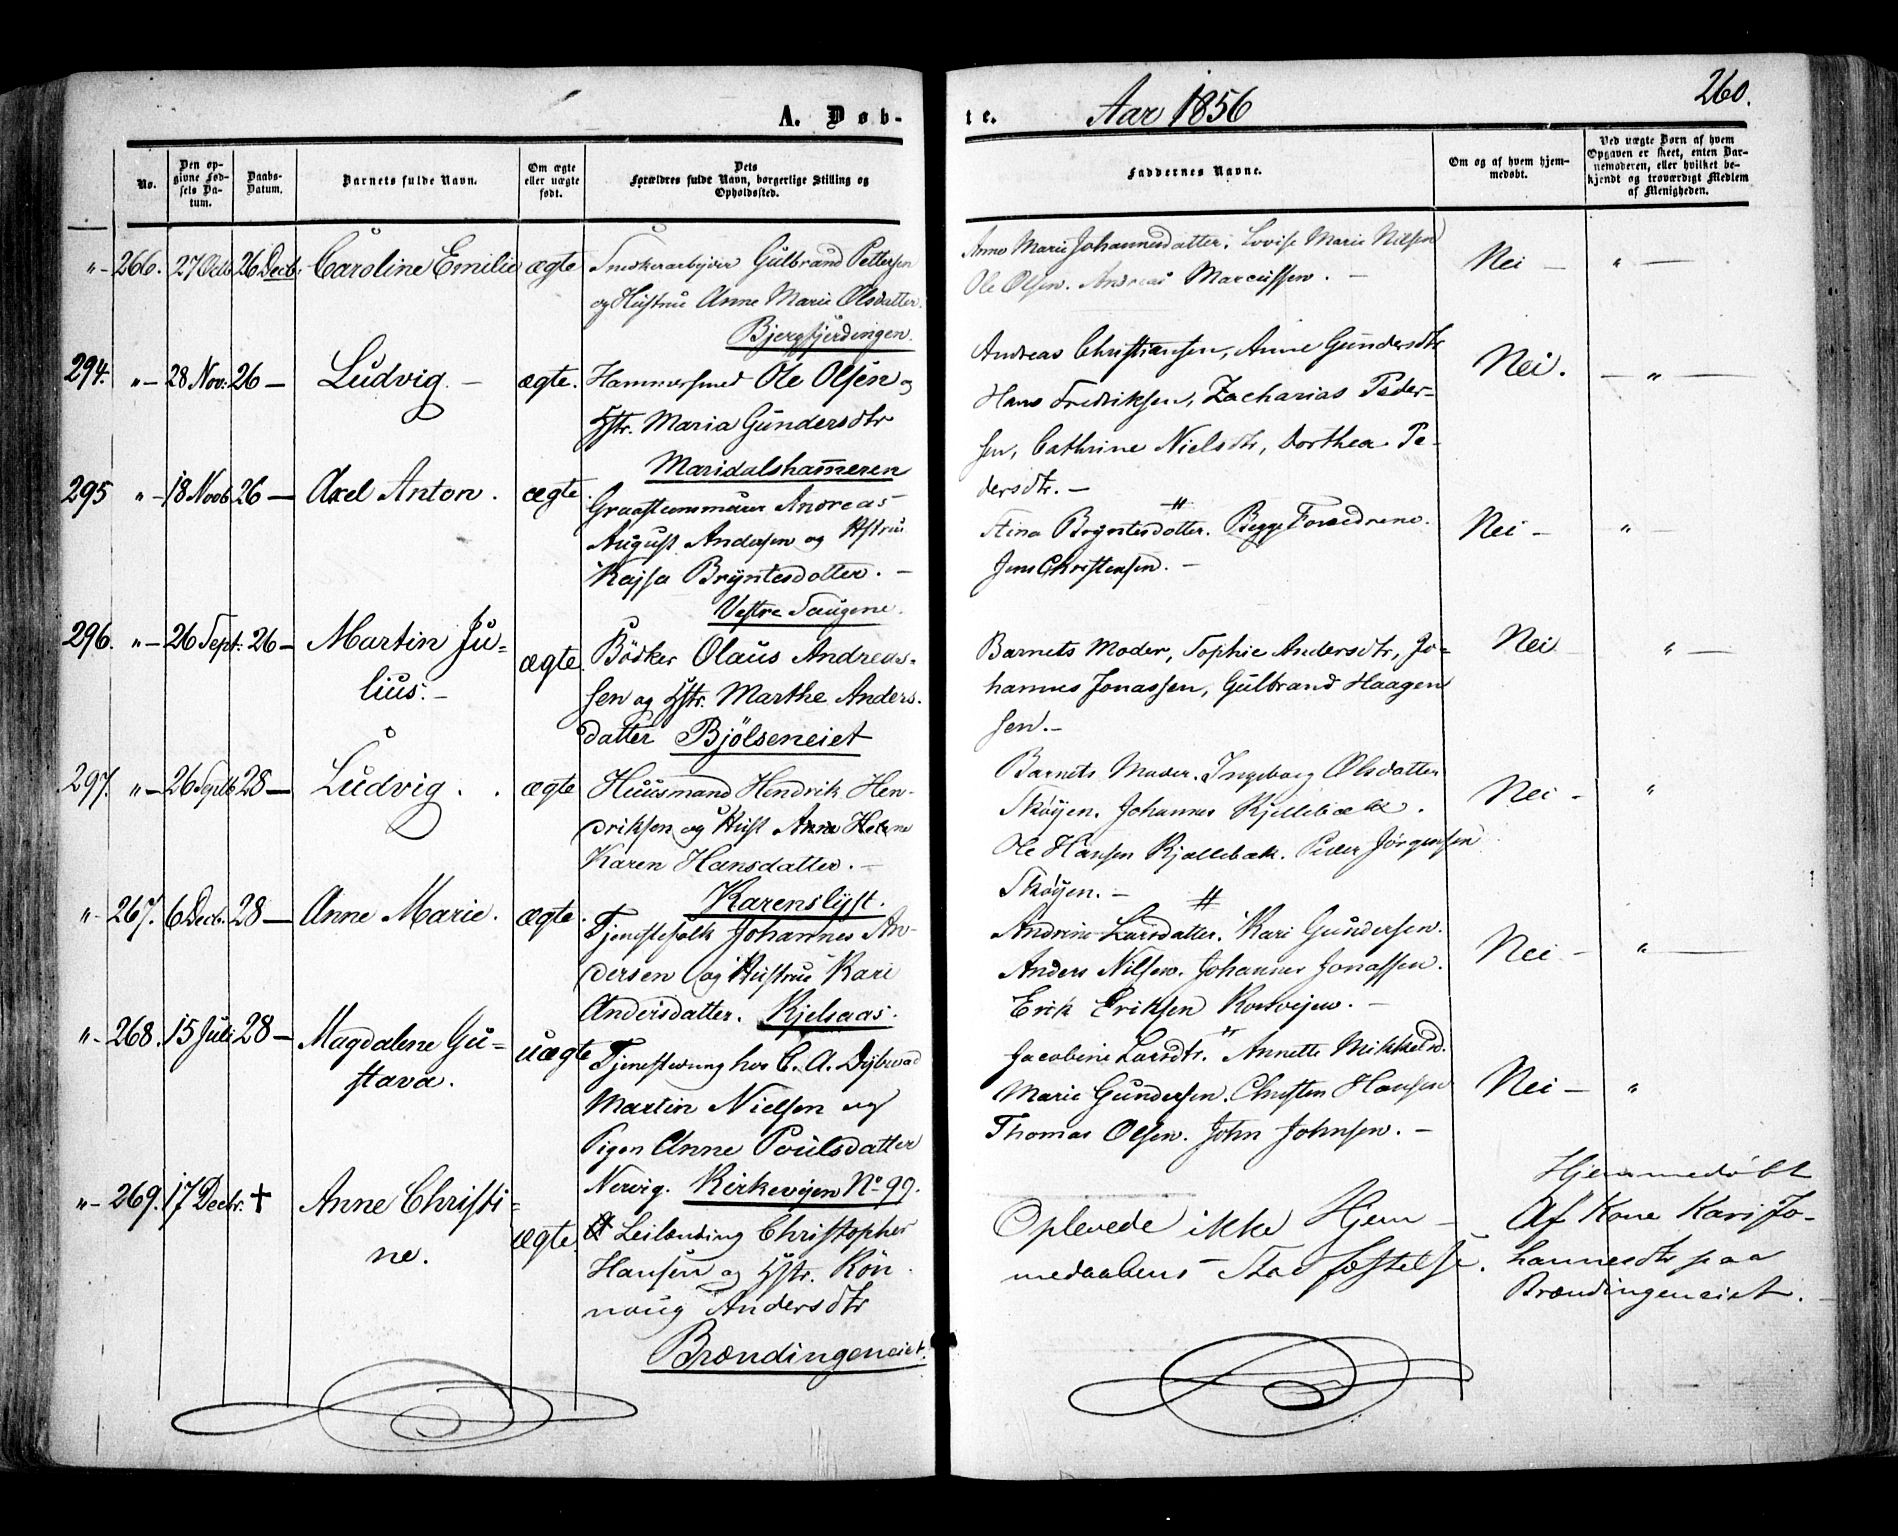 A. Døb-
te.
Aar 1856
260.
No.
Den op-
givne Fød-
sels Da-
tum.
Daabs-
Datum.
Barnets fulde Navn.
Om ægte
eller uægte
født.
Dets
Forældres fulde Navn, borgerlige Stilling og
Opholdssted.
Faddernes Navne.
Om og af hvem hjem-
medøbt.
Ved uægte Børn af hvem
Opgaven er skeet, enten Bar-
nemoderen, eller hvilket be-
kjendt og troværdigt Medlem
af Menigheden.
"- 266. 27 Octb 26 Decb: Caroline Emilie ægte
Gulbrand Pettersen
og Hustrue Anne Marie Olsdatter.
Bjergfjerdingen.
Anne Marie Johannesdatter. Lovise Marie Nilsen
Ole Olsen. Andreas Marcussen. -
Nei - " -
294. "- 28 Nov: 26 - Ludvig. - ægte.
Hammersmed Ole Olsen og
Hstr. Maria Gundersdtr
Maridalshammeren
Andreas Christiansen, Anne Gundersdtr
Hans Fredriksen, Zacharias Peder-
sen, Cathrine Nielsdtr, Dorthea Pe-
dersdtr. -
Nei. - " -
295 "- 18 Novb 26 - Axel Anton. ægte.
Andreas
August Andersen og Hstrue
Kajsa Bryntesdotter. -
Vestre Saugene.
Stina Bryntesdotter. Begge Forældrene.
Jens Christensen. -
Nei - " -
296. "- 26 Sept: 26 - Martin Ju-
lius. - ægte.
Bödker Olaus Andreas-
sen og Hstr. Marthe Anders-
datter Bjölseneiet
Barnets Moder, Sophie Andersdtr, Jo-
hannes Jonassen, Gulbrand Haagen
sen. -
Nei " -
297. "- 26 Septb 28 - Ludvig. . ægte
Huusmand Hendrik Hen-
driksen og Hust Anne Helene
Karen Hansdatter. -
Karenslyst.
Barnets Moder. Ingeborg Olsdatter
Skøyen. Johannes Kjellebæk.
Ole Hansen Kjællebæk. Peder Jørgensen
Skøyen. -
Nei - "
"- 267. 6 Decb. 28 - Anne Marie. ægte.
Tjenestefolk Johannes An-
dersen og Hustrue Kari
Andersdatter. Kjelsaas.
Andrine Larsdatter. Kari Gundersen.
Anders Nilsen. Johannes Jonassen.
Erik Eriksen Korsvejen. -
Nei - " -
"- 268. 15 Juli 28 - Magdalene Gu-
stava. uægte
Tjenestedreng hos C. A. Dybwad
Martin Nielsen og
Pigen Anne Poulsdatter
Nervig. Kirkevejen No 99.
Jacobine Larsdtr. Annette Mikkelsd.
Marie Gundersen. Christen Hansen
Thomas Olsen. John Johnsen. -
Nei - "
"- 269. 17 Decbr. † Anne Christi-
ne. ægte.
Leilænding Christopher
Hansen og Hstr. Rön-
naug Andersdtr
Brændingeneiet.
Oplevede ikke Hjem-
medaabens Stadfæstelse.
Hjemmedøbt
Af Kone Kari Jo-
hannesdtr paa
Brændingeneiet.